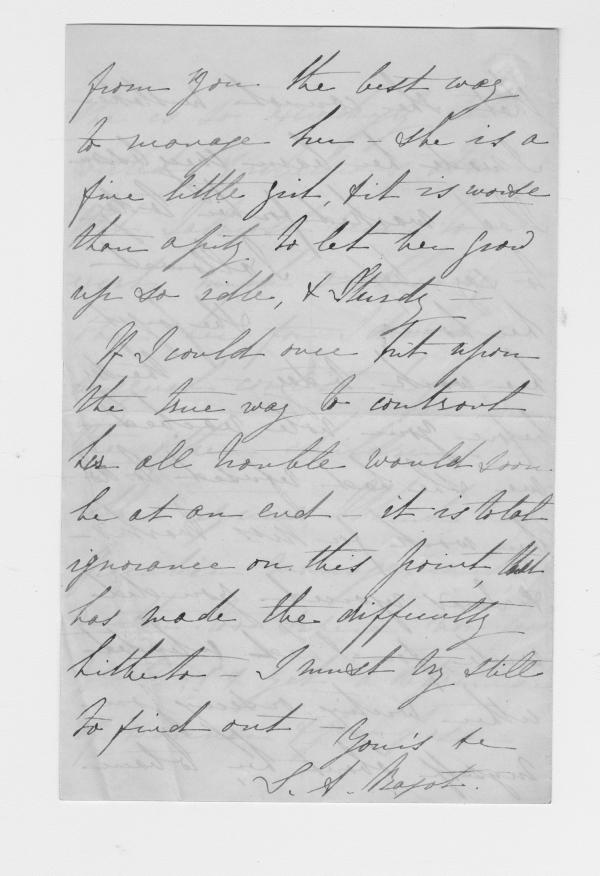 from you the best way
to manage her - she is a
fine little girl, & it is worse
than a pity to let her grow
up so idle, & Sturdy -
If I could once hit upon
the true way to controul
her all trouble would soon
be at an end - it is total
ignorance on this point, that
has made the difficulty
hitherto - I must try still
to find out -
Your's &c
S. A. Bagot.